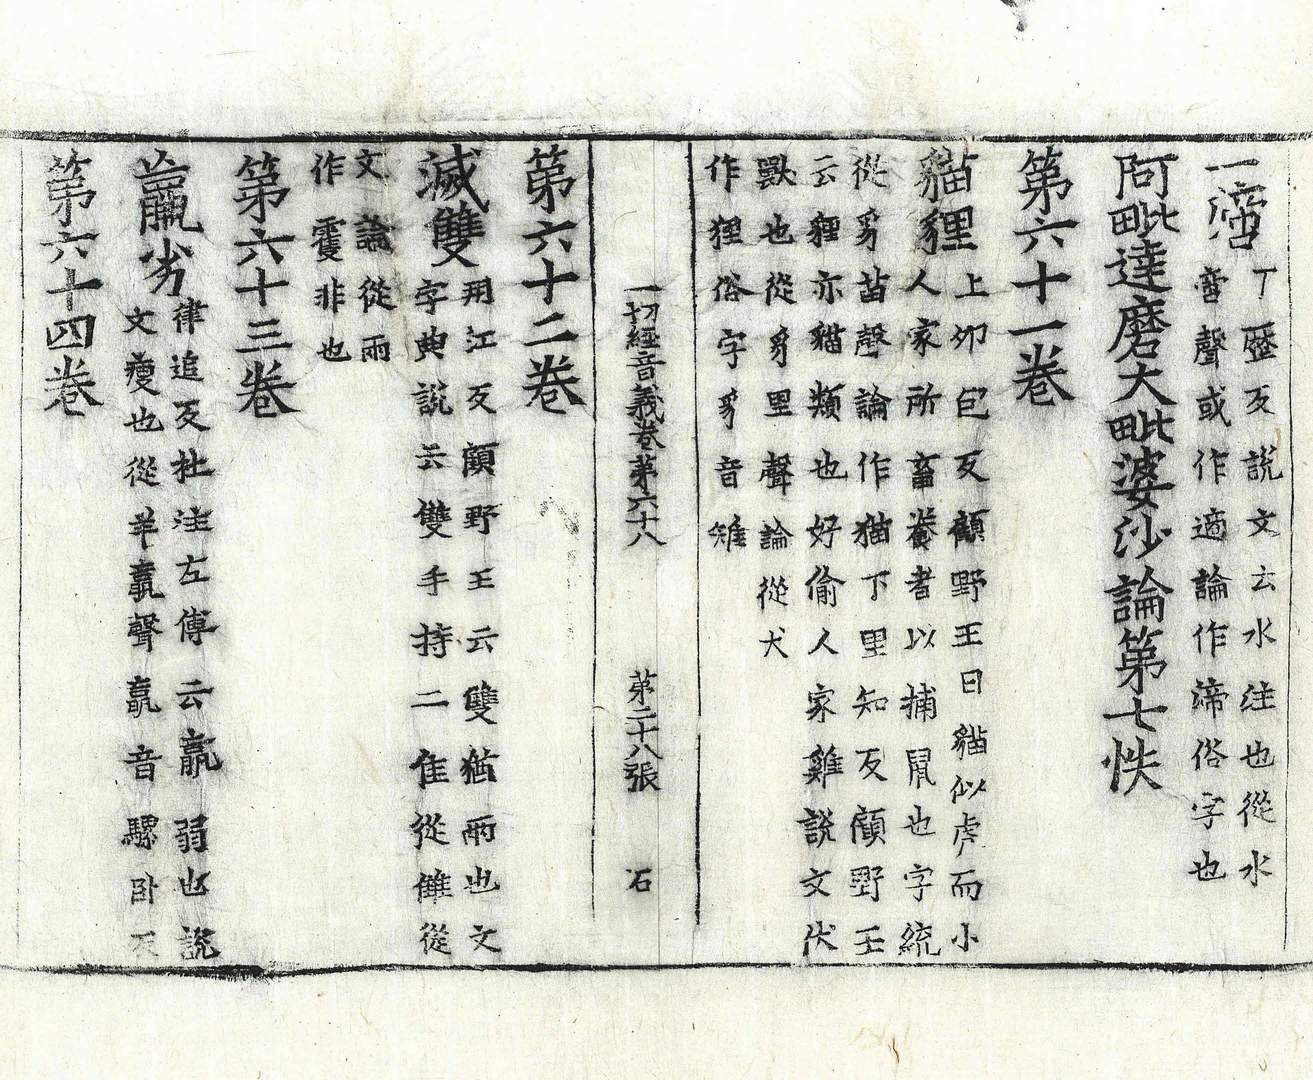 一渧
丁歷反說文云水注也從水
啻聲或作適論作渧俗字也
阿毗達磨大毗婆沙論第七帙
第六十一卷
貓貍
上卯包反顧野王曰貓似虎而小
人家所畜養者以捕鼠也字統
從豸苗聲論作猫下里知反顧野王
云貍亦貓類也好偷人家雞說文伏
獸也從豸里聲論從犬
作狸俗字豸音雉
一切經音義卷第六十八 第二十八張 石
第六十二卷
滅雙
朔江反顧野王云雙猶兩也文
字典說云雙手持二隹從雔從
又論從雨
作䨥非也
第六十三卷
羸劣
律追反杜注左傳云羸弱也說
文瘦也從羊𣎆聲𣎆音騾卧反
第六十四卷